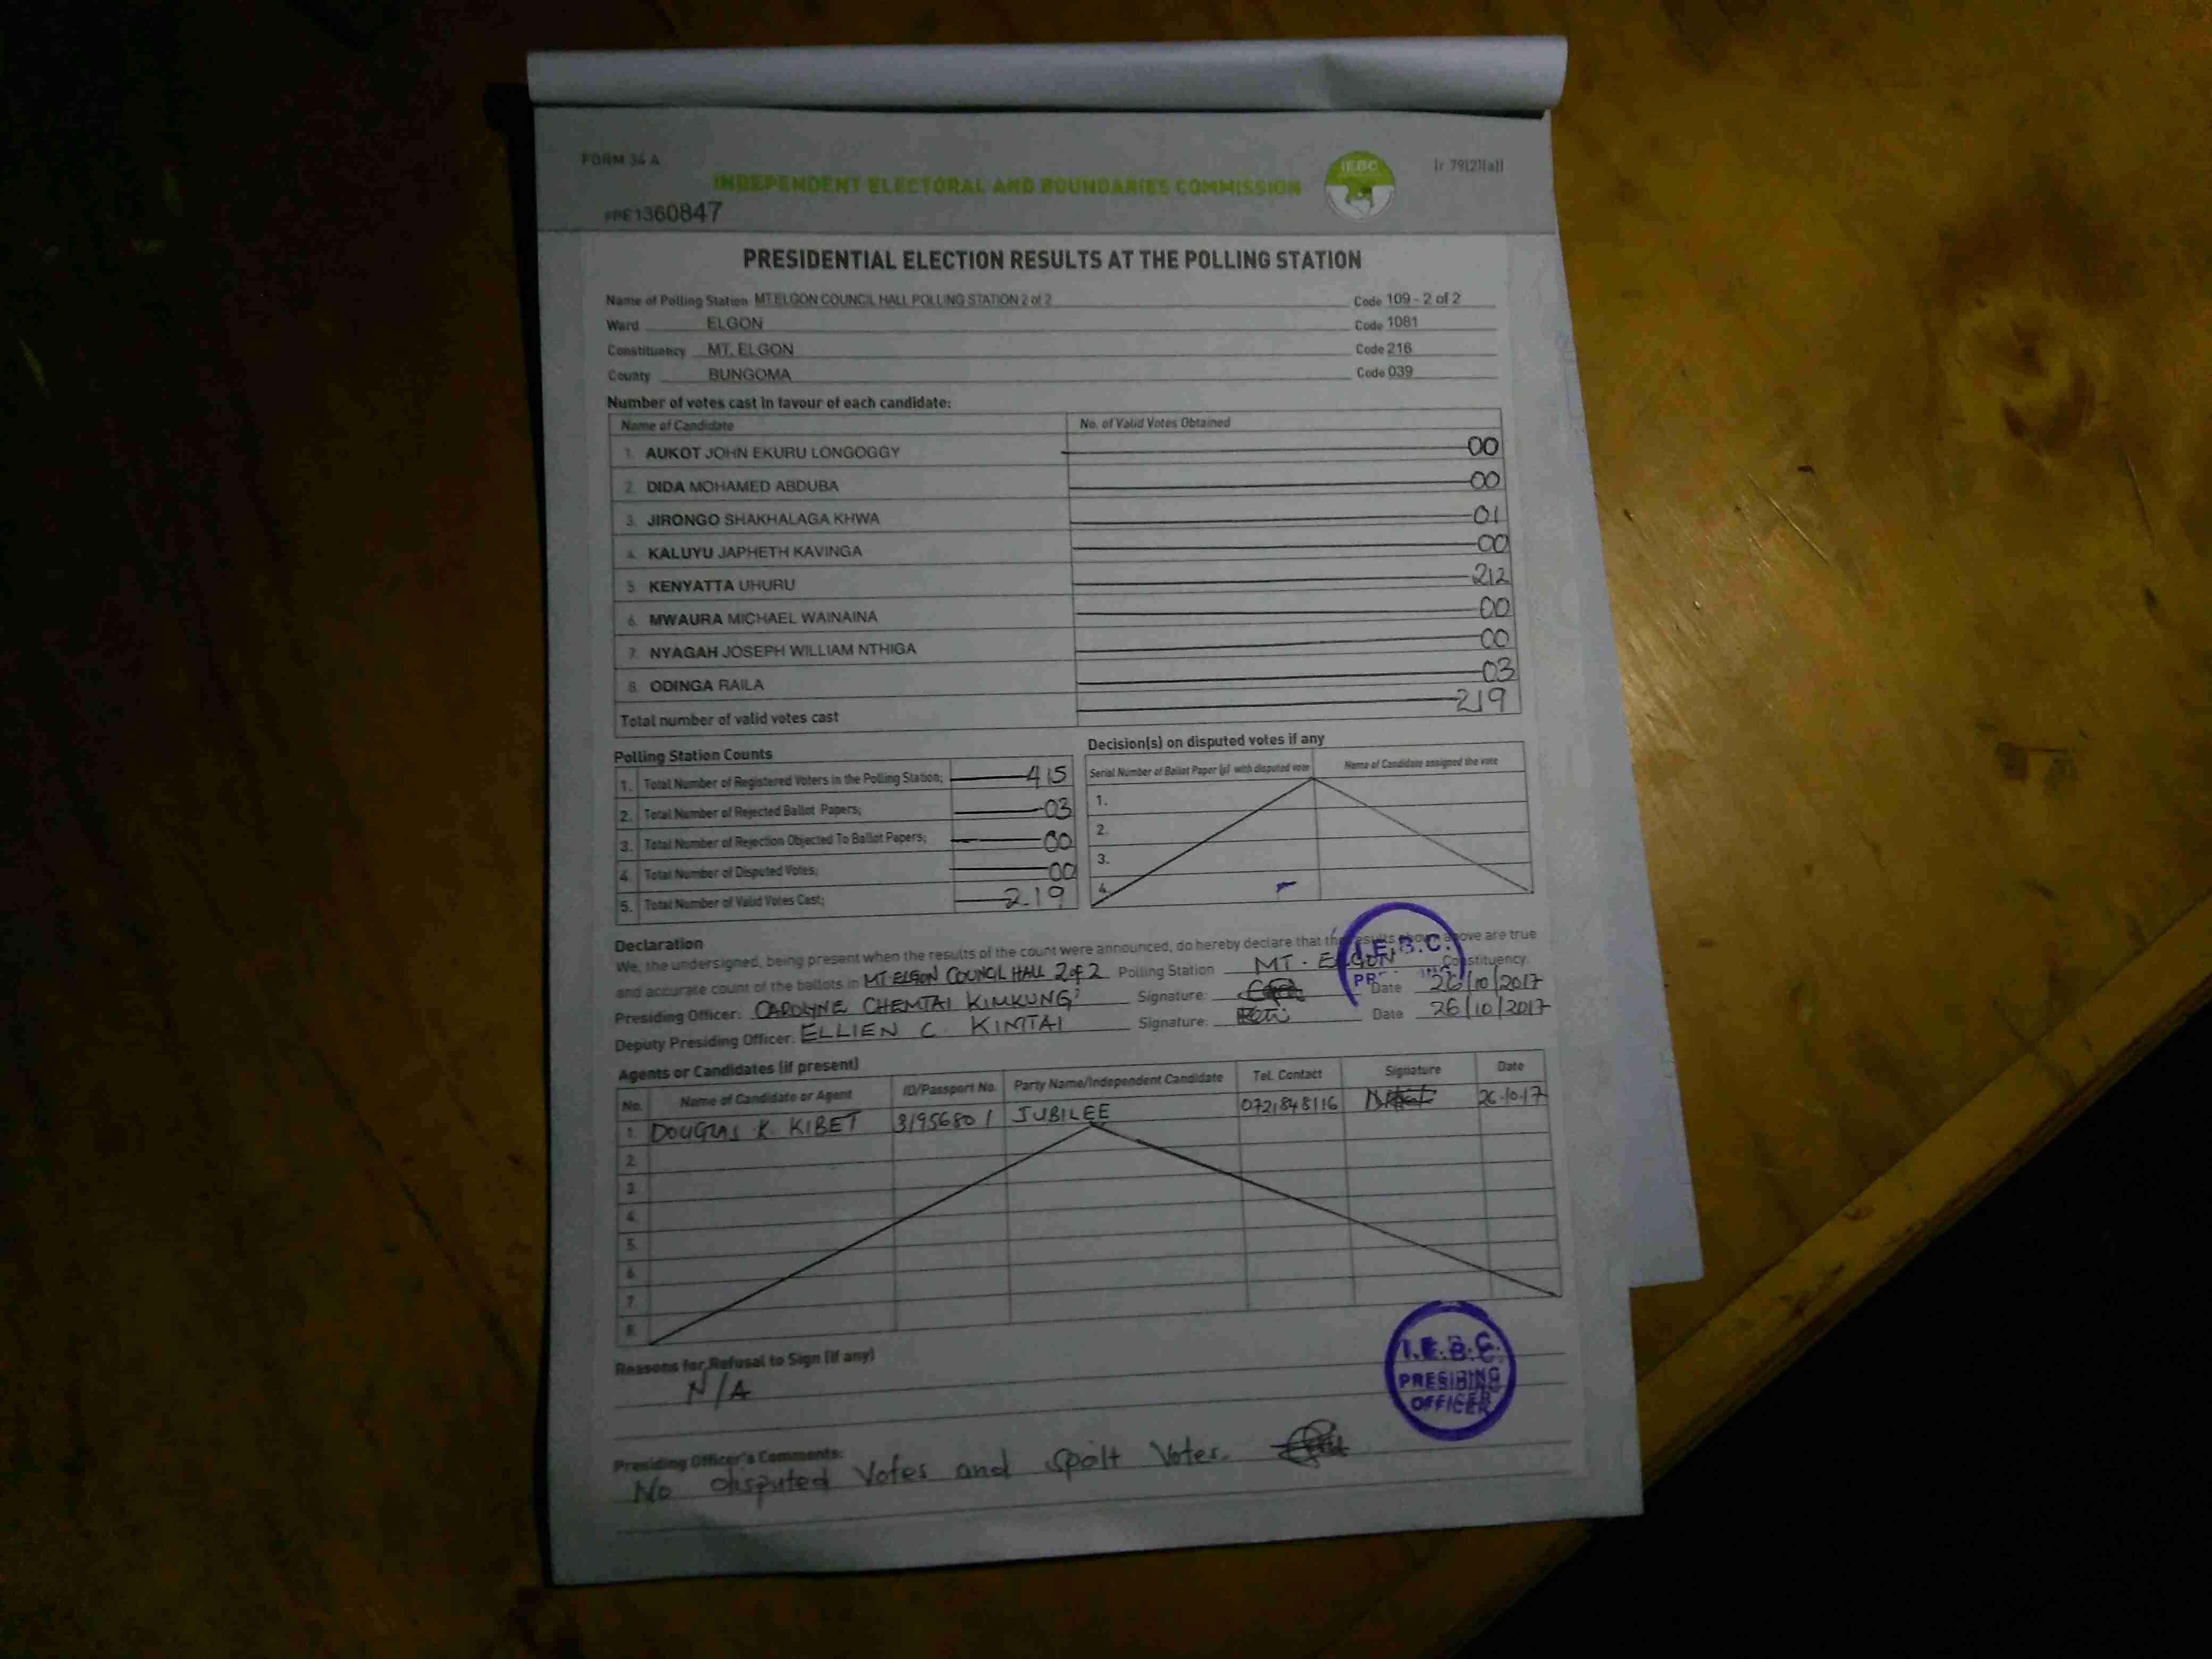 FORM 34 A
(r 79(2)(a))
INDEPENDENT ELECTORAL AND BOUNDARIES COMMISSION
IEBC
#PE1360847
PRESIDENTIAL ELECTION RESULTS AT THE POLLING STATION
Name of Polling Station MT.ELGON COUNCIL HALL POLLING STATION 2 of 2 Code 109 - 2 of 2
Ward ELGON Code 1081
Constituency MT. ELGON Code 216
County BUNGOMA Code 039
Number of votes cast in favour of each candidate:
Name of Candidate No. of Valid Votes Obtained
1. AUKOT JOHN EKURU LONGOGGY 00
2. DIDA MOHAMED ABDUBA 00
3. JIRONGO SHAKHALAGA KHWA 01
4. KALUYU JAPHETH KAVINGA 00
5. KENYATTA UHURU 212
6. MWAURA MICHAEL WAINAINA 00
7. NYAGAH JOSEPH WILLIAM NTHIGA 00
8. ODINGA RAILA 03
Total number of valid votes cast 219
Polling Station Counts
1. Total Number of Registered Voters in the Polling Station; 415
2. Total Number of Rejected Ballot Papers; 03
3. Total Number of Rejection Objected To Ballot Papers; 00
4. Total Number of Disputed Votes; 00
5. Total Number of Valid Votes Cast; 219
Decision(s) on disputed votes if any
Serial Number of Ballot Paper (s) with disputed vote Name of Candidate assigned the vote
1.
2.
3.
4.
Declaration
We, the undersigned, being present when the results of the count were announced, do hereby declare that the results shown above are true
and accurate count of the ballots in MT ELGON COUNCIL HALL 2 of 2 Polling Station MT. ELGON Constituency.
Presiding Officer: CAROLYNE CHEMTAI KIMKUNG' Signature: Date 26/10/2017
Deputy Presiding Officer: ELLIEN C. KIMTAI Signature: Date 26/10/2017
I.E.B.C.
Agents or Candidates (if present)
No. Name of Candidate or Agent ID/Passport No. Party Name/Independent Candidate Tel. Contact Signature Date
1. DOUGLAS K. KIBET 31956801 JUBILEE 0721848116 26.10.17
2.
3.
4.
5.
6.
7.
8.
Reasons for Refusal to Sign (if any)
N/A
I.E.B.C.
PRESIDING
OFFICER
Presiding Officer's Comments:
No disputed Votes and spoilt Votes.